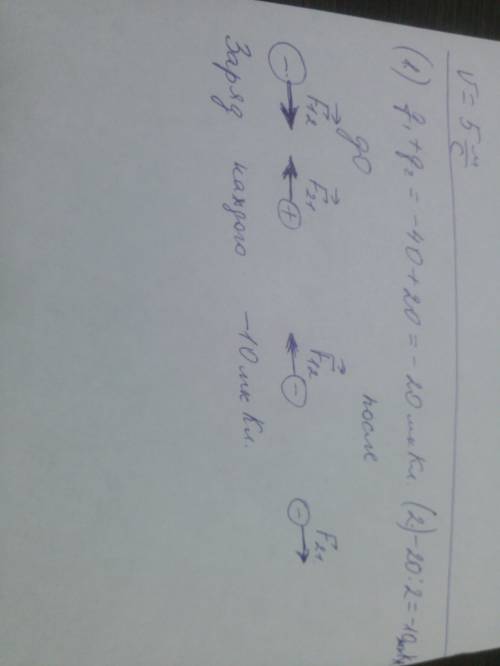 V = 5 м/с
(1) q₁ + q₂ = -40 + 20 = -20 мкКл. (2) -20 : 2 = -10мкКл
до после
F₁₂ F₂₁ F₁₂ F₂₁
- + - -
Заряд каждого -10 мкКл.